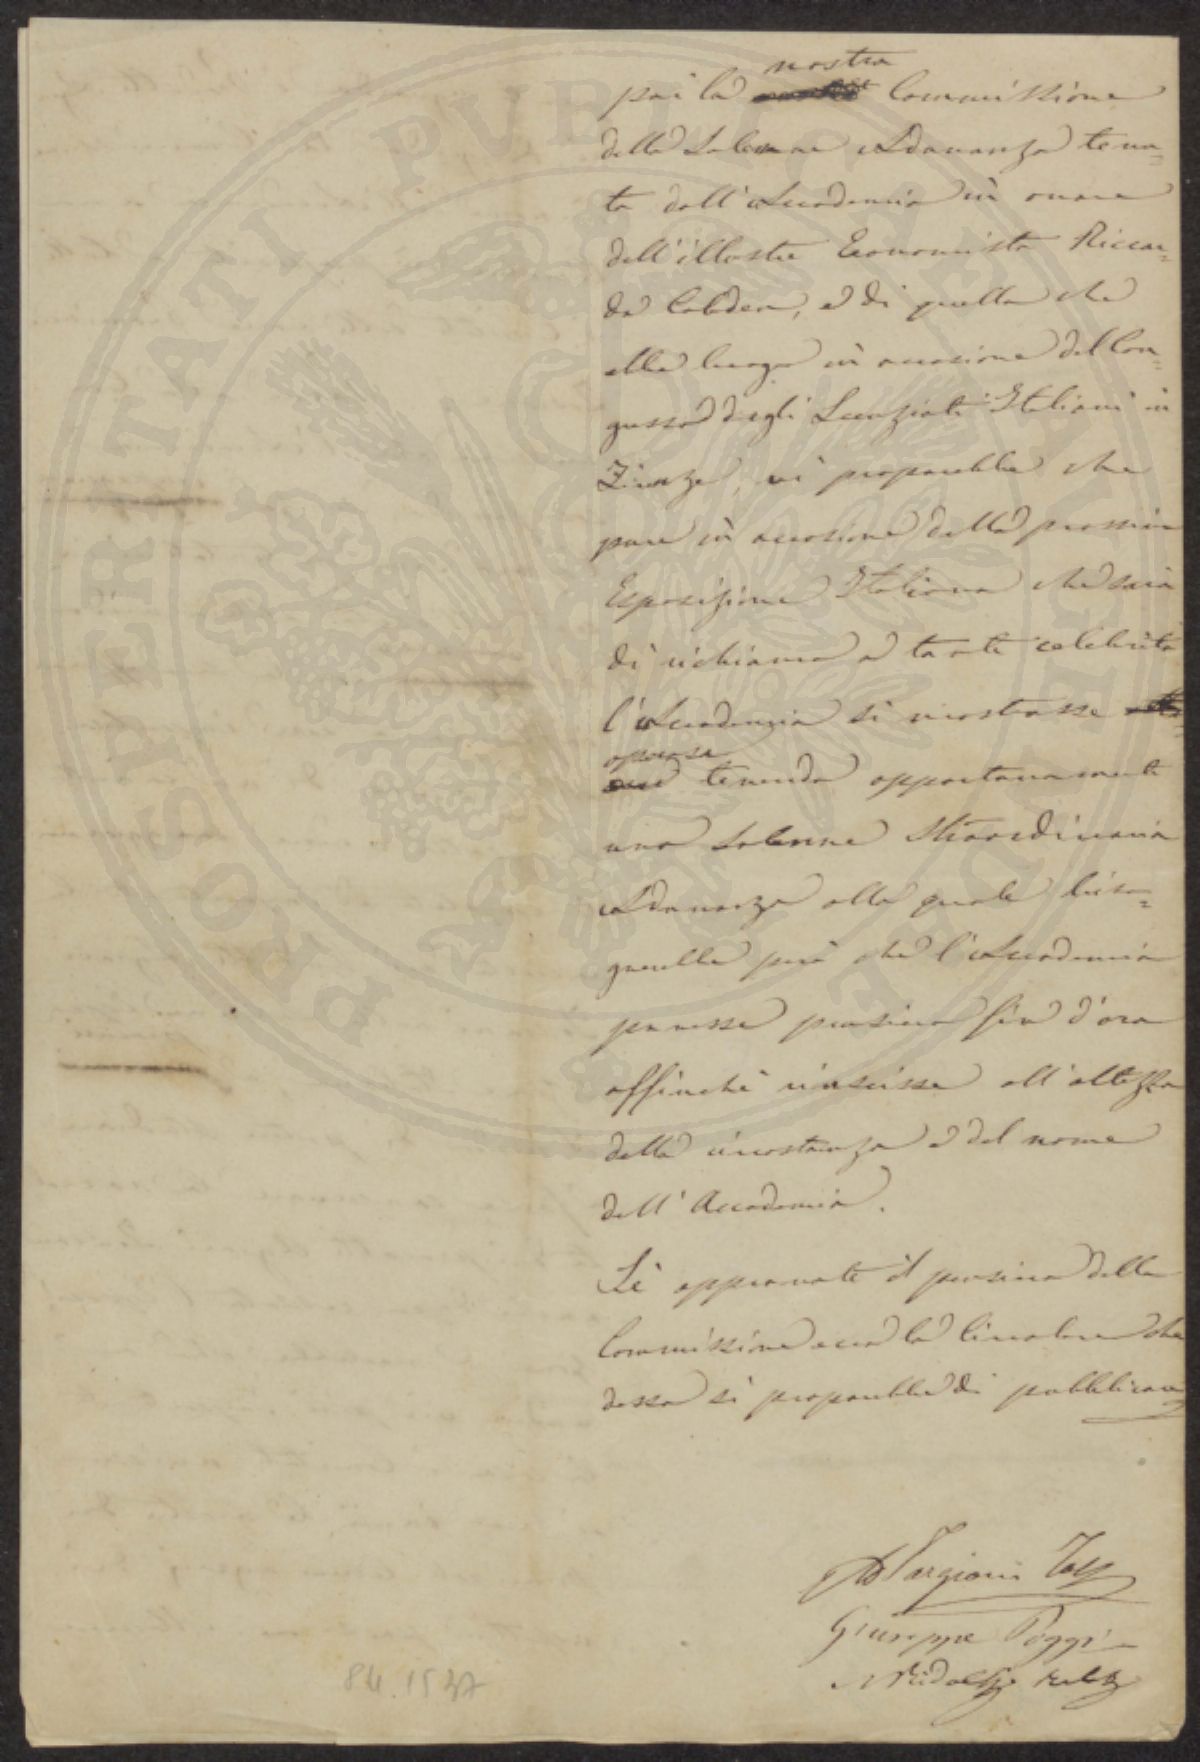 nostra
poi la Commissione
della Solenne Adunanza tenu=
ta dall'Accademia in onore
dell'illustre Economista Riccar=
do Cobden, e di quella che
ebbe luogo in occasione del Con=
gresso degli Scenziati Italiani in
Firenze, vi proporrebbe che
pure in occasione della prossima
Esposizione Italiana che sarà
di richiamo a tante celebrità
l'Accademia si mostrasse
operosa
tenendo opportunamente
una Solenne Straordinaria
Adunanza alla quale biso=
gnerebbe però che l'Accademia
ponesse pensiero fin d'ora
affinchè riuscisse all'altezza
della circostanza e del nome
dell'Accademia.
Se approvate il pensiero della
Commissione ecco la Circolare che
dessa si proporrebbe di pubblicare
Targioni Tozz
Giuseppe Poggi
Ridolfi
84.1537
PROSPERITATI PUBLICAE AUGENDAE